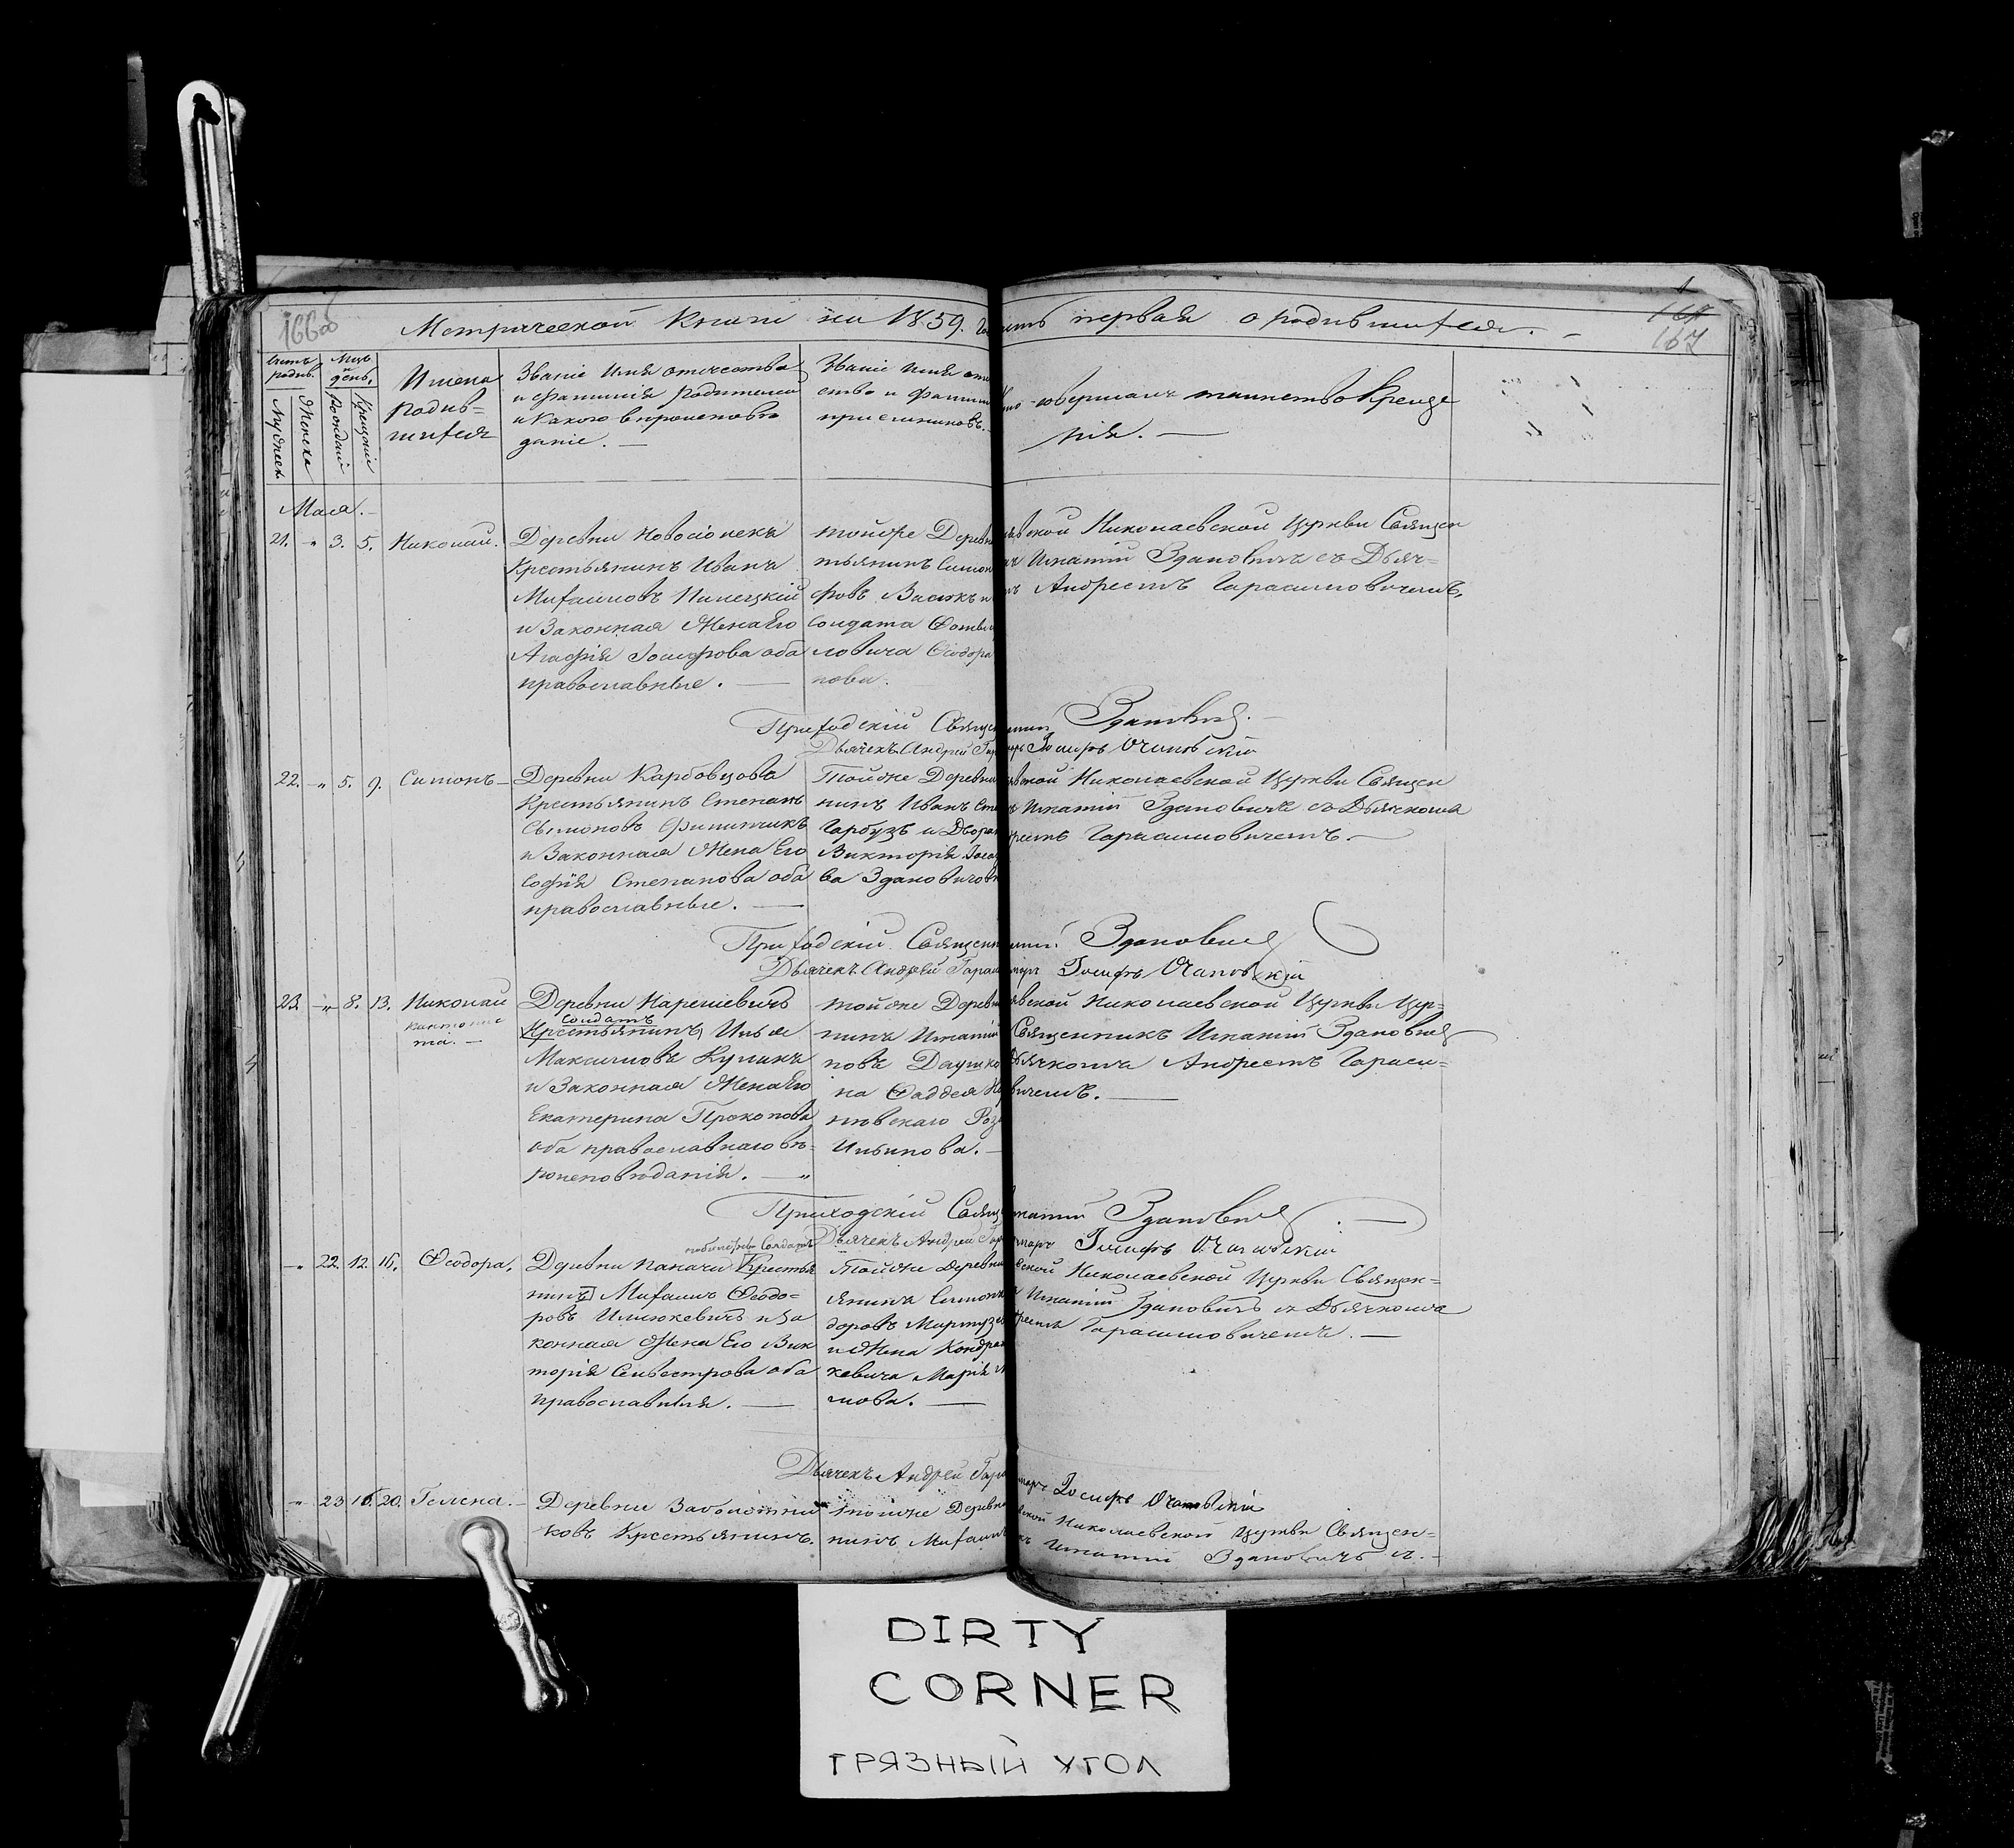 166об
Метрической Книги на 1859. часть первая о родившихся.
167
167
Счетъ родив.
Мужеска
Женска
Мцъ и день,
Рожденій
Крещеній
Имена родив=
шихся
Званіе Имя отечество
и фамилія родителей
и какого вѣроисповѣ
данія.
Званіе Имя оте
ство и фамил
пріемниковъ.
совершалъ таинство Креще
нія.
Мая.
21. " 3. 5. Николай.
Деревни
Крестьянинъ Иванъ
Михаиловъ
и Законная Жена Его
Агафія Іосифова оба
православные.
тойже Деревн
тьянинъ Симон
фовъ
солдата
ловича Ѳеодора
нова.
вской Николаевской Церкви Священ
Игнатій Здановичъ съ Дьяч=
Андреемъ Гарасимовичемъ.
Приходскій Священ
Здановичъ.
Дьячекъ Андрей Гар
Іосифъ
22. " 5. 9. Симонъ
Деревни
Крестьянинъ Степанъ
Симоновъ Филипчикъ
и Законная Жена Его
Софія Степанова оба
православные.
Тойже Деревни
нинъ Иванъ Сте
Гарбузъ и Дворян
Викторія Іоси
ва Здановичов
вской Николаевской Церкви Священ
Игнатій Здановичъ съ Дьячкомъ
реемъ Гарасимовичемъ.
Приходскій Священн
Здановичъ
Дьячекъ Андрей Гарас
Іосифъ
23. " 8. 13. Николай
кантонис
та.
Деревни
солдатъ
Крестьянинъ Илья
Максимовъ Кулакъ
и Законная Жена Его
Екатерина Прокопова
оба православнаго вѣ=
роисповѣданія.
тойже Деревн
нинъ Игнатій
нова
на Фаддея
Ильинова.
вской Николаевской Церкви Цер=
Священникъ Игнатій Здановичъ
Дьячкомъ Андреемъ Гараси=
вичемъ.
Приходскій Свящ
натій Здановичъ
Дьячекъ Андрей Гар
Іосифъ
Солдатъ
" 22. 12. 16. Ѳеодора.
Деревни Нагачи Крестья
нинъ Михаилъ Ѳеодо=
ровъ Илюкевичъ и за
конная Жена Его Вик
торія Сильвестрова оба
православныя.
Тойже Деревни
янинъ Симонъ
доровъ
и Жена Кондра
кевича Марія
мова.
вской Николаевской Церкви Священ=
Игнатій Здановичъ съ Дьячкомъ
реемъ Гарасимовичемъ.
Дьячекъ Андрей Гара
Іосифъ
" 23 16. 20. Гелена.
Деревни Заболотни
ковъ Крестьянинъ.
тойже Деревн
нинъ Михаилъ
вской Николаевской Церкви Священ=
Игнатій Здановичъ съ.
DIRTY
CORNER
ГРЯЗНЫЙ УГОЛ